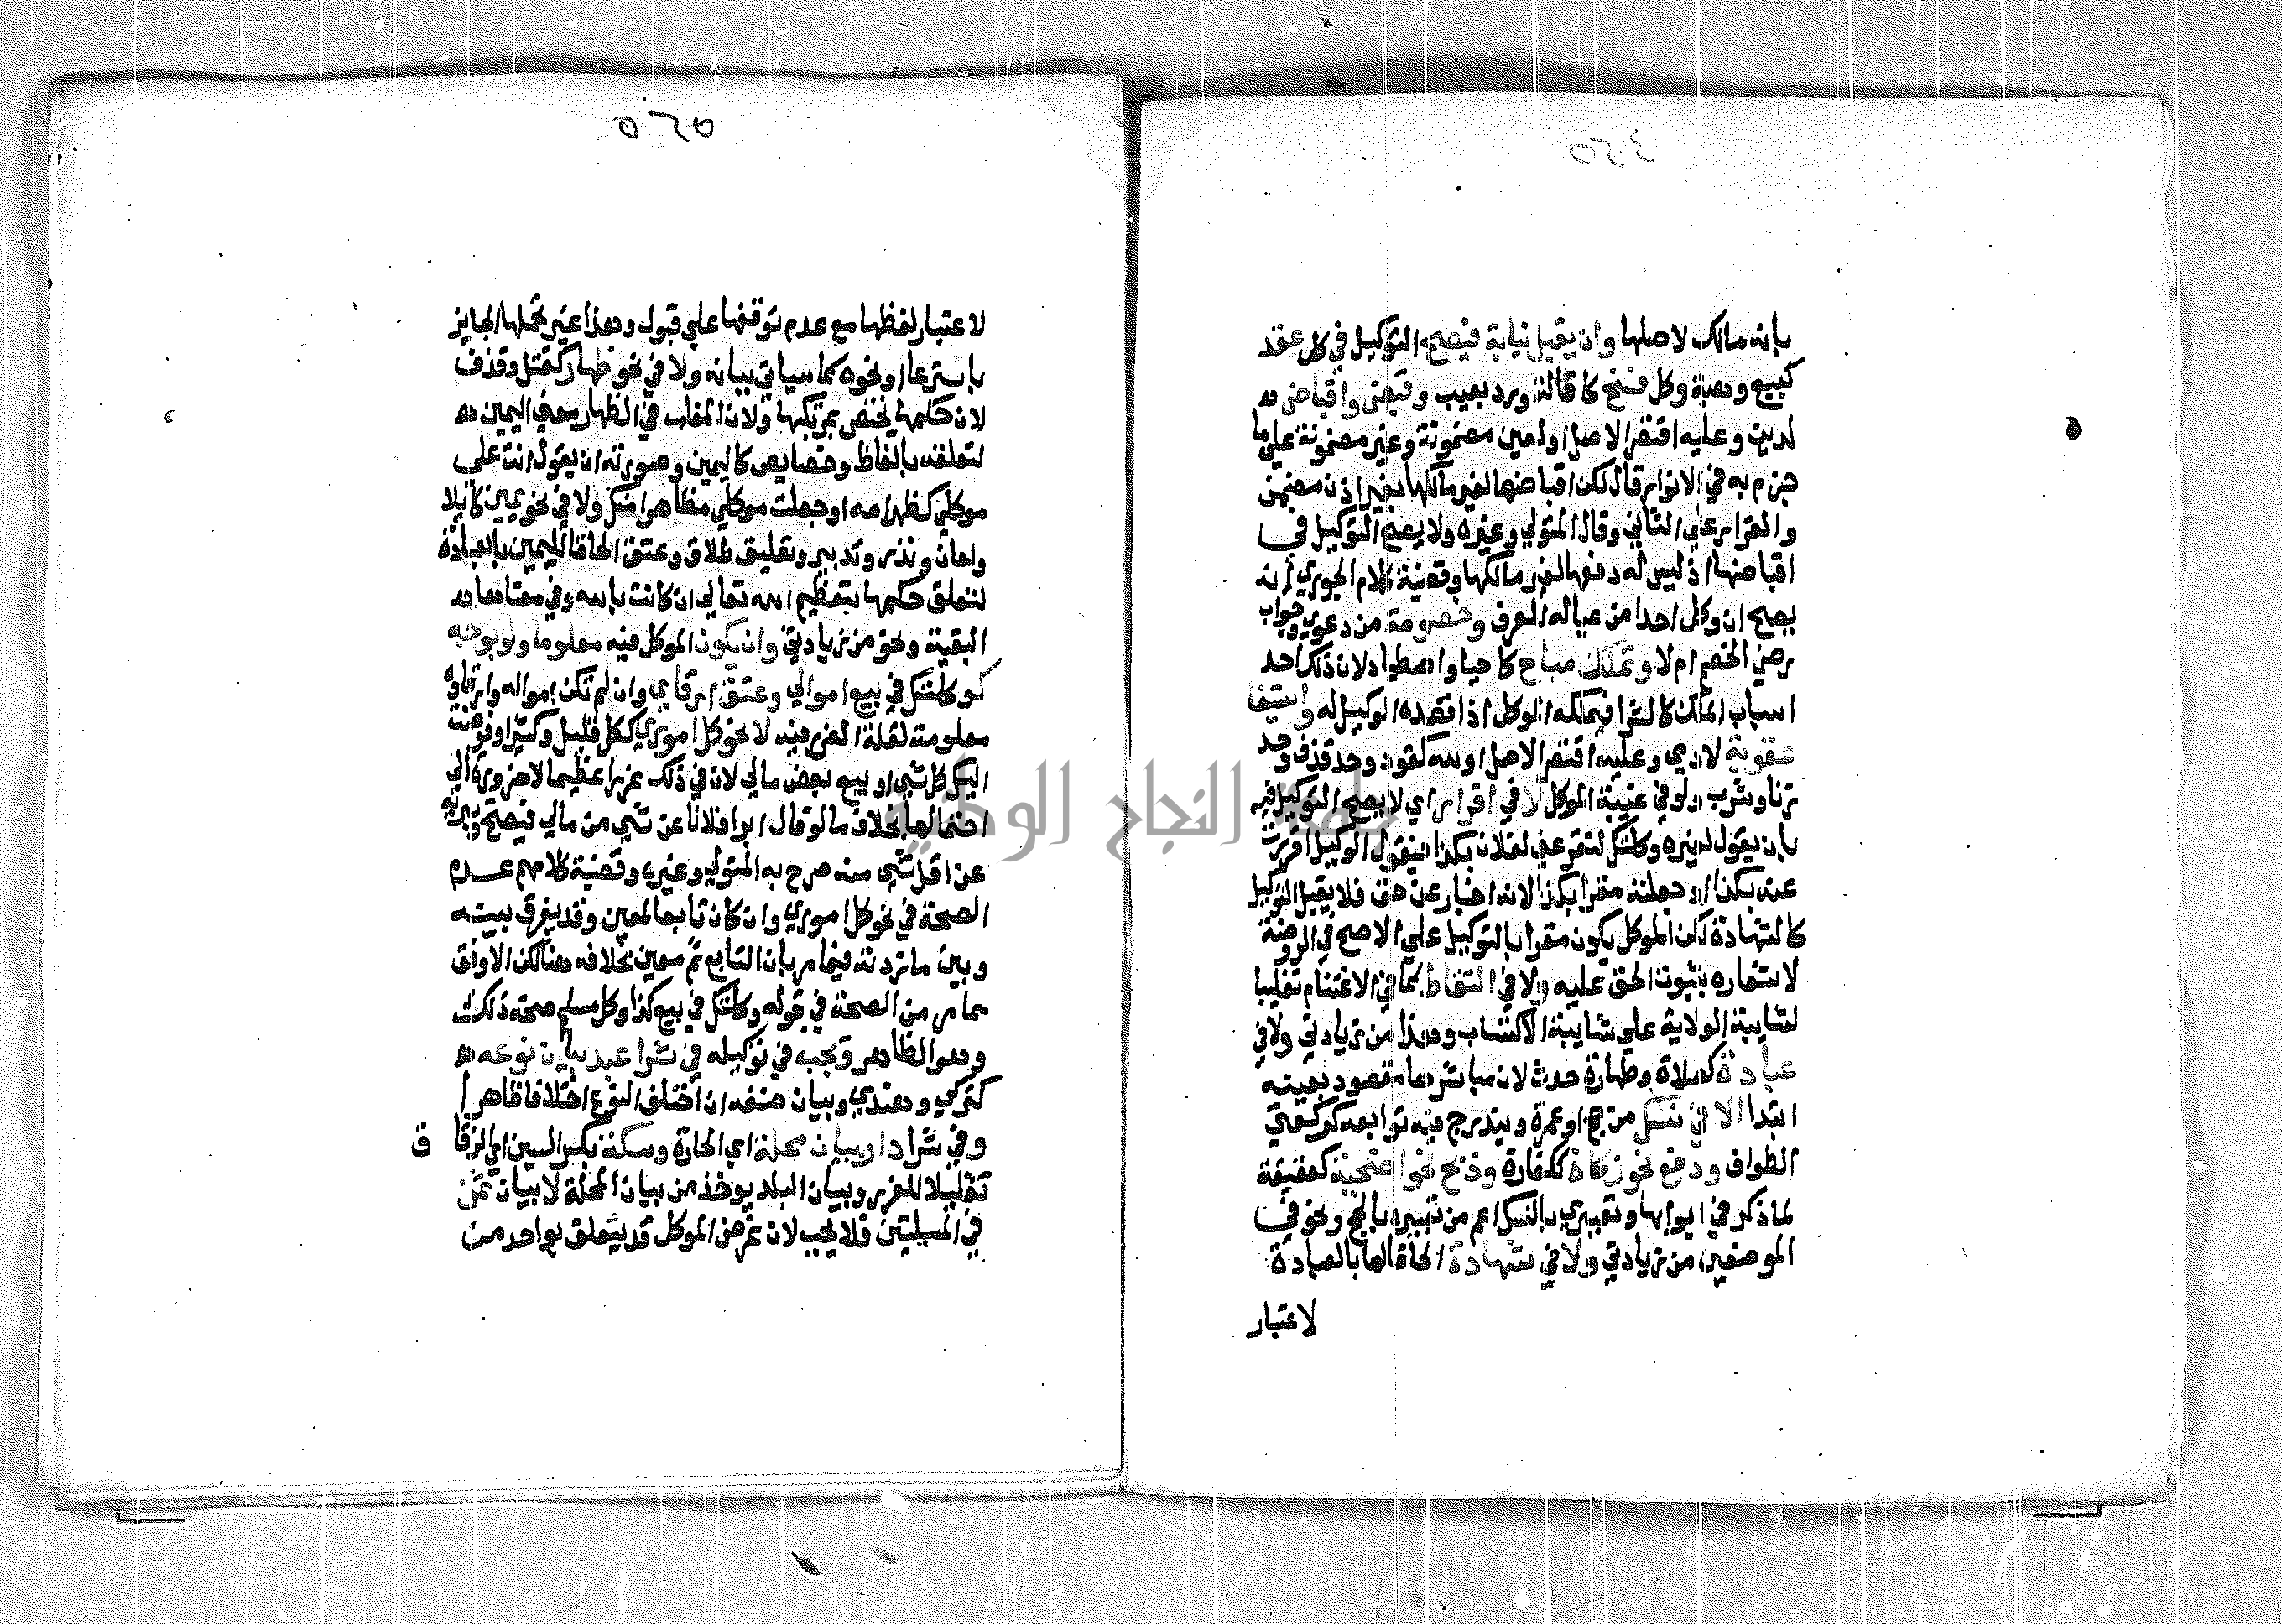 ٥٢٤
بانه مالك لاصلها وان يقبل نيابة فيصح التوكيل في كل عقد
كبيع وهبة وكل فسخ كاقالة ورد بعيب وقبض واقباض
لدين وعليه اقتصر الاصل او لعين مضمونة وغير مضمونة علي ما
جزم به في الانوار قال لكن اقباضها لغير مالكها بغير اذن مضمن
والقرار علي الثاني وقال المتولي وغيره ولا يصح التوكيل في
اقباضها اذ ليس له دفعها لغير مالكها وقضية كلام الجوري انه
يصح ان وكل احدا من عياله للعرف وخصومة من دعوي وجواب
رضي الخصم ام لا وتملك مباح كاحيا واصطياد لان ذلك احد
اسباب الملك كالشرا فيملكه الموكل اذا قصده الوكيل له واستيفا
عقوبة لادمي وعليه اقتصر الاصل او لله كقود وحد قذف وحد
زنا وشرب ولو في غيبة الموكل لا في اقرار اي لا يصح التوكيل فيه
بان يقول لغيره وكلتك لتقر عني لفلان بكذا فيقول الوكيل اقررت
عنه بكذا او جعلته مقرا بكذا لانه اخبار عن حق فلا يقبل التوكيل
كالشهادة لكن الموكل يكون مقرا بالتوكيل علي الاصح في الروضة
لاشعاره بثبوت الحق عليه ولا في التقاط كما في الاغتنام تغليبا
لشايبة الولاية علي شايبة الاكتساب وهذا من زيادتي ولا في
عبادة كصلاة وطهارة حدث لان مباشرها مقصود بعينه
ابتدا الا في نسك من حج او عمرة ويندرج فيه توابعه كركعتي
الطواف ودفع نحو زكاة ككفارة وذبح نحو اضحية كعقيقة
لما ذكر في ابوابها وتعبيري بالنسك اعم من تعبيره بالحج ونحو في
الموضعين من زيادتي ولا في شهادة الحاقا لها بالعبادة
لاعتبار
٥٢٥
لاعتبار لفظها مع عدم توقفها علي قبول وهذا غير تحملها الجايز
باسترعا او نحوه كما سياتي بيانه ولا في نحو ظهار كقتل وقذف
لان حكمها يختص بمرتكبها ولان المغلب في الظهار معني اليمين
لتعلقه بالفاظ وخصايص كاليمين وصورته ان يقول انت علي
موكلي كظهر امه او جعلت موكلي مظاهرا منك ولا في نحو يمين كايلا
ولعان ونذر وتدبير وتعليق طلاق وعتق الحاقا لليمين بالعبادة
لتعلق حكمها بتعظيم الله تعالي ان كانت بالله وفي معناها
البقية ونحو من زيادتي وان يكون الموكل فيه معلوما ولو بوجه
كوكلتك في بيع اموالي وعتق ارقاي وان لم تكن امواله وارقاوه
معلومة لقلة الغرر فيه لا نحو كل اموري ككل قليل وكثير او فوضت
اليك كل شي او بيع بعض مالي لان في ذلك غررا عظيما لا ضرورة الي
احتمالها بخلاف ما لو قال ابرا فلانا عن شي من مالي فيصح ويبريه
عن اقل شي منه صرح به المتولي وغيره وقضية كلامهم عدم
الصحة في نحو كل اموري وان كان تابعا لمعين وقد يفرق بينه
وبين ما زدته فيما مر بان التابع ثم معين بخلافه هنا لكن الاوفق
بما مر من الصحة في قوله وكلتك في بيع كذا وكل مسلم صحة ذلك
وهو الظاهر ويجب في توكيله في شرا عبد بيان نوعه
كتركي وهندي وبيان صنفه ان اختلف النوع اختلافا ظاهرا
وفي شرا دار بيان محلة اي الحارة وسكة بكسر السين اي الزقاق
تقليلا للغرر وبيان البلد يوخذ من بيان المحلة لا بيان ثمن
في المسيلتين فلا يجب لان غرض الموكل قد يتعلق بواحد من
جامعة النجاح الوطنية